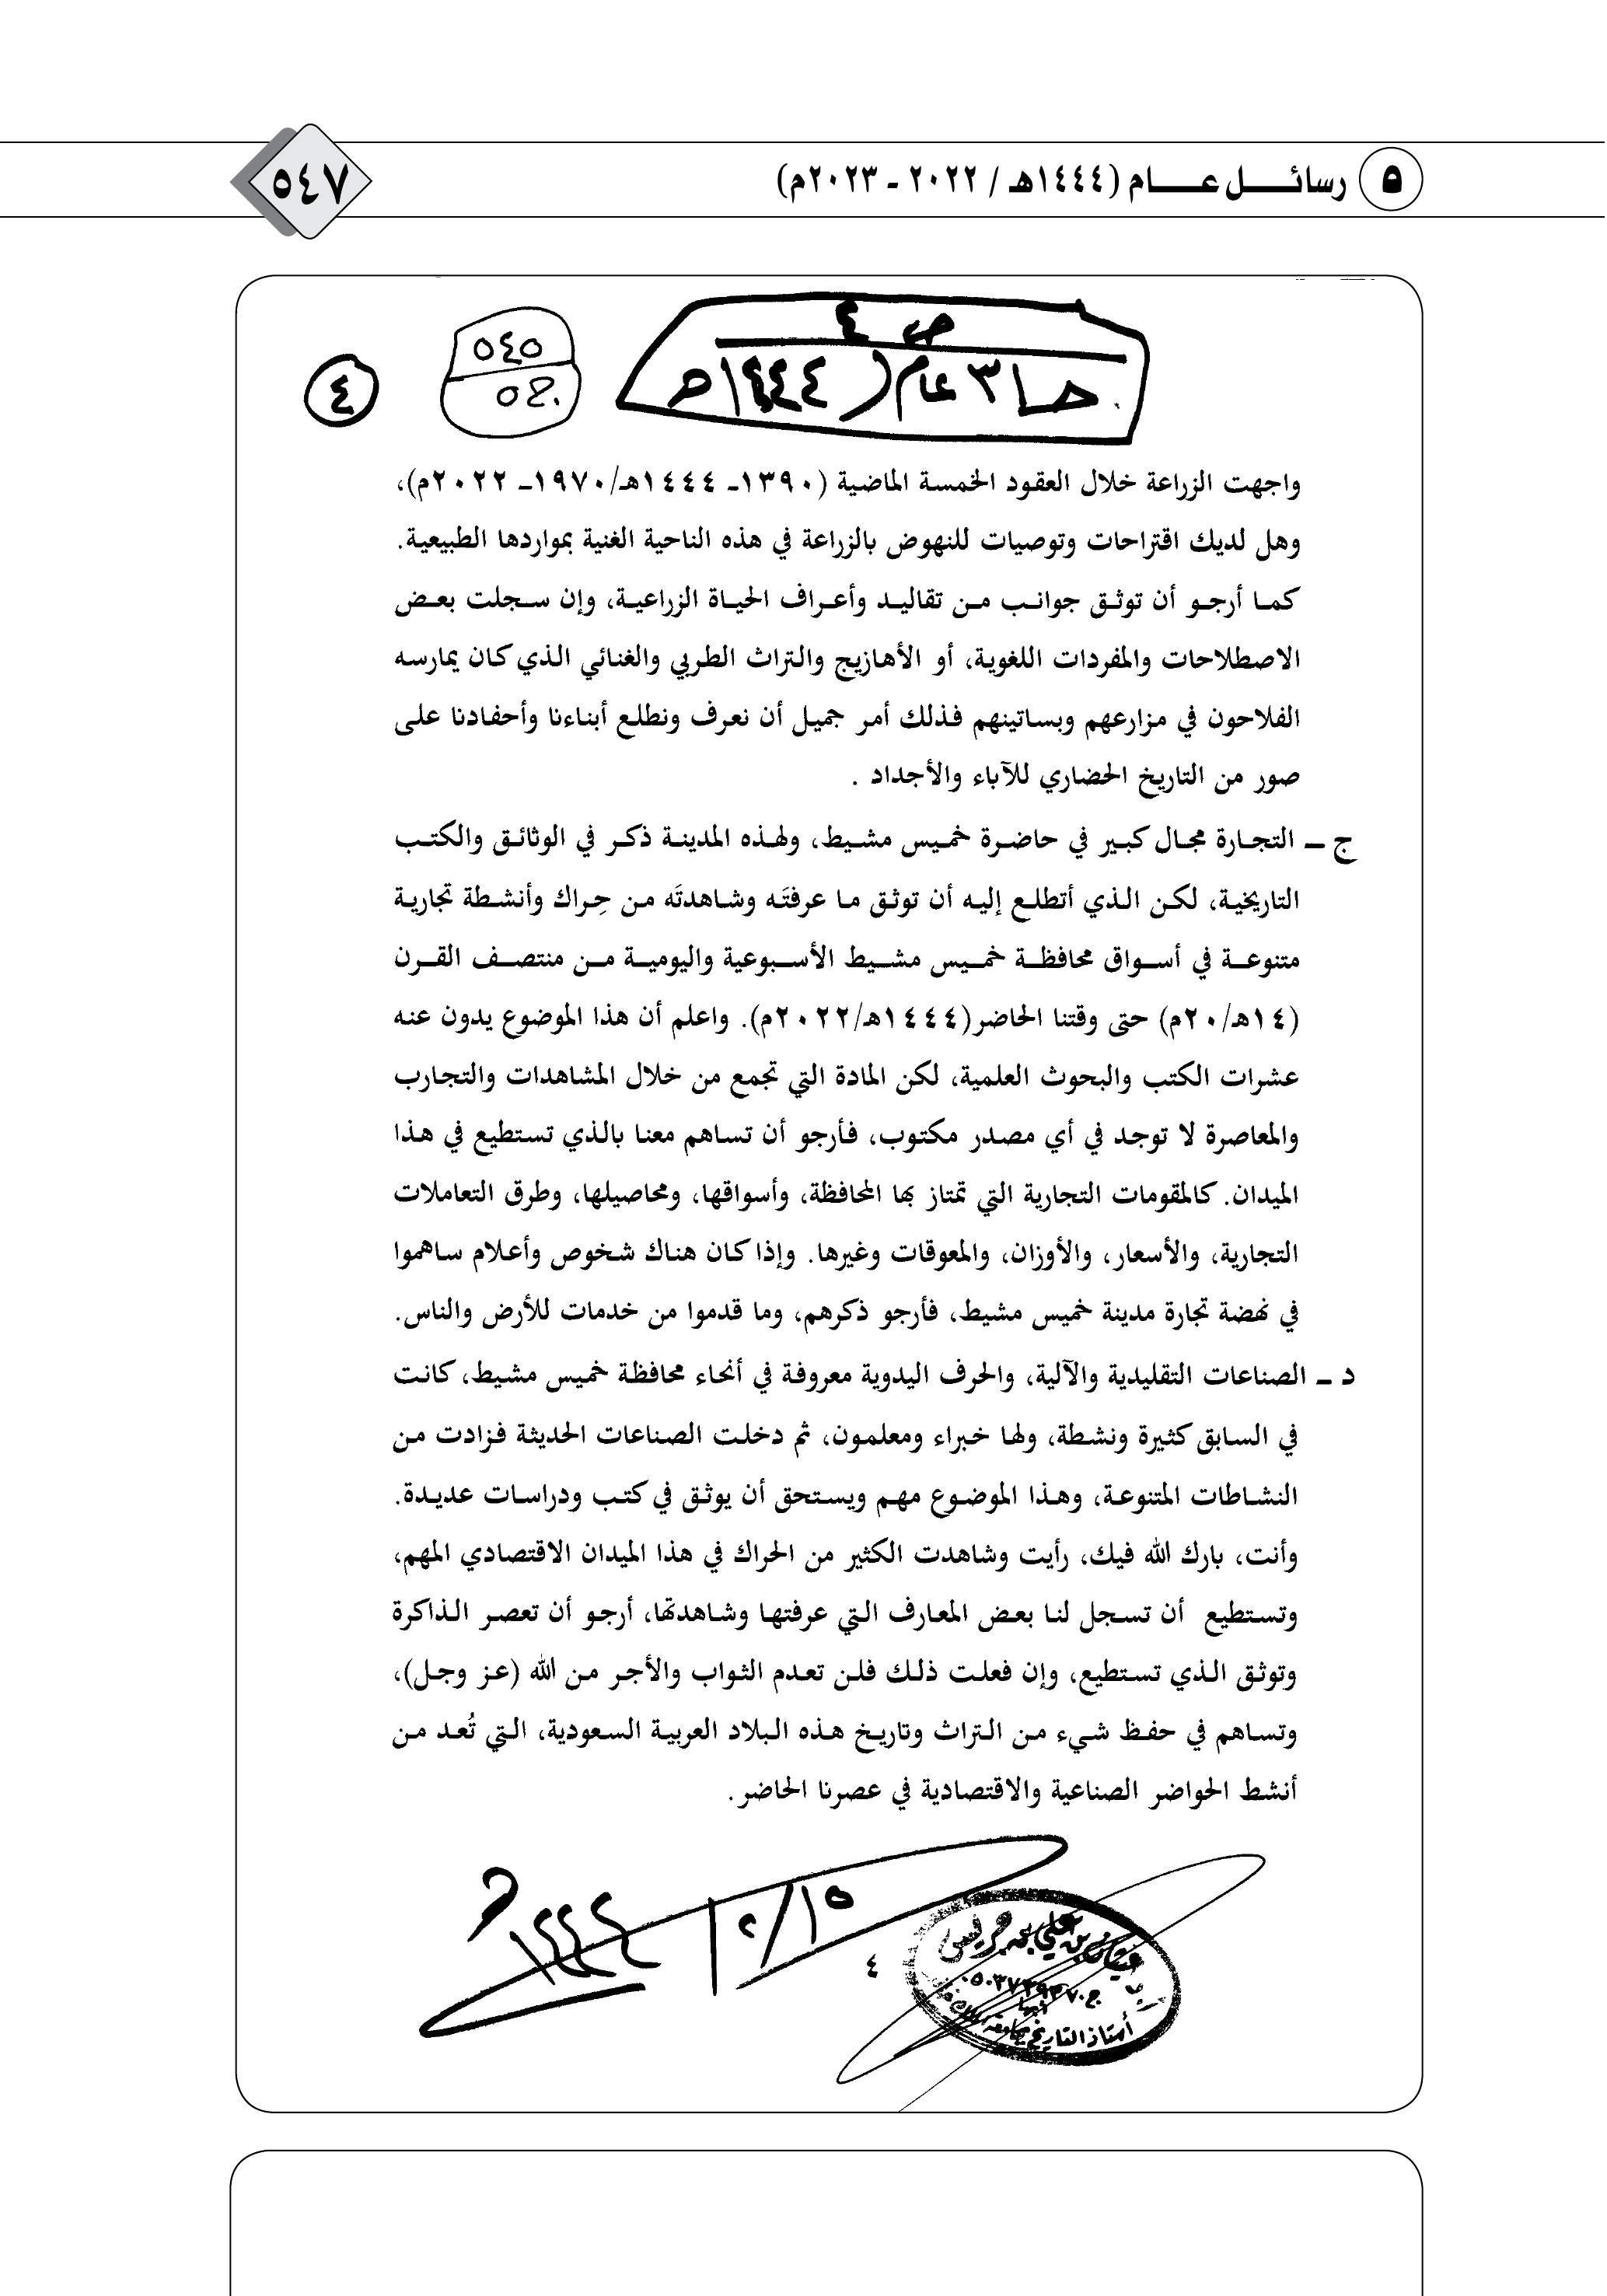 ٥ رسائل عام (١٤٤٤هـ / ٢٠٢٢ ـ ٢٠٢٣م)
٥٤٧
ص ٤
حـ٣١ عام (١٤٤٤هـ
٥٤٥
٤
واجهت الزراعة خلال العقود الخمسة الماضية (١٣٩٠ـ ١٤٤٤هـ/١٩٧٠ـ ٢٠٢٢م)،
وهل لديك اقتراحات وتوصيات للنهوض بالزراعة في هذه الناحية الغنية بمواردها الطبيعية.
كما أرجو أن توثق جوانب من تقاليد وأعراف الحياة الزراعية، وإن سجلت بعض
الاصطلاحات والمفردات اللغوية، أو الأهازيج والتراث الطربي والغنائي الذي كان يمارسه
الفلاحون في مزارعهم وبساتينهم فذلك أمر جميل أن نعرف ونطلع أبناءنا وأحفادنا على
صور من التاريخ الحضاري للآباء والأجداد .
ج ـ التجارة مجال كبير في حاضرة خميس مشيط، ولهذه المدينة ذكر في الوثائق والكتب
التاريخية، لكن الذي أتطلع إليه أن توثق ما عرفتَه وشاهدتَه من حِراك وأنشطة تجارية
متنوعة في أسواق محافظة خميس مشيط الأسبوعية واليومية من منتصف القرن
(١٤هـ/٢٠م) حتى وقتنا الحاضر(١٤٤٤هـ/٢٠٢٢م). واعلم أن هذا الموضوع يدون عنه
عشرات الكتب والبحوث العلمية، لكن المادة التي تجمع من خلال المشاهدات والتجارب
والمعاصرة لا توجد في أي مصدر مكتوب، فأرجو أن تساهم معنا بالذي تستطيع في هذا
الميدان. كالمقومات التجارية التي تمتاز بها المحافظة، وأسواقها، ومحاصيلها، وطرق التعاملات
التجارية، والأسعار، والأوزان، والمعوقات وغيرها. وإذا كان هناك شخوص وأعلام ساهموا
في نهضة تجارة مدينة خميس مشيط، فأرجو ذكرهم، وما قدموا من خدمات للأرض والناس.
د ـ الصناعات التقليدية والآلية، والحرف اليدوية معروفة في أنحاء محافظة خميس مشيط، كانت
في السابق كثيرة ونشطة، ولها خبراء ومعلمون، ثم دخلت الصناعات الحديثة فزادت من
النشاطات المتنوعة، وهذا الموضوع مهم ويستحق أن يوثق في كتب ودراسات عديدة.
وأنت، بارك الله فيك، رأيت وشاهدت الكثير من الحراك في هذا الميدان الاقتصادي المهم،
وتستطيع أن تسجل لنا بعض المعارف التي عرفتها وشاهدتها، أرجو أن تعصر الذاكرة
وتوثق الذي تستطيع، وإن فعلت ذلك فلن تعدم الثواب والأجر من الله (عز وجل)،
وتساهم في حفظ شيء من التراث وتاريخ هذه البلاد العربية السعودية، التي تُعد من
أنشط الحواضر الصناعية والاقتصادية في عصرنا الحاضر.
١٥/٢/١٤٤٤هـ
٤
بن علي بن جريس
أستاذ التاريخ بجامعة